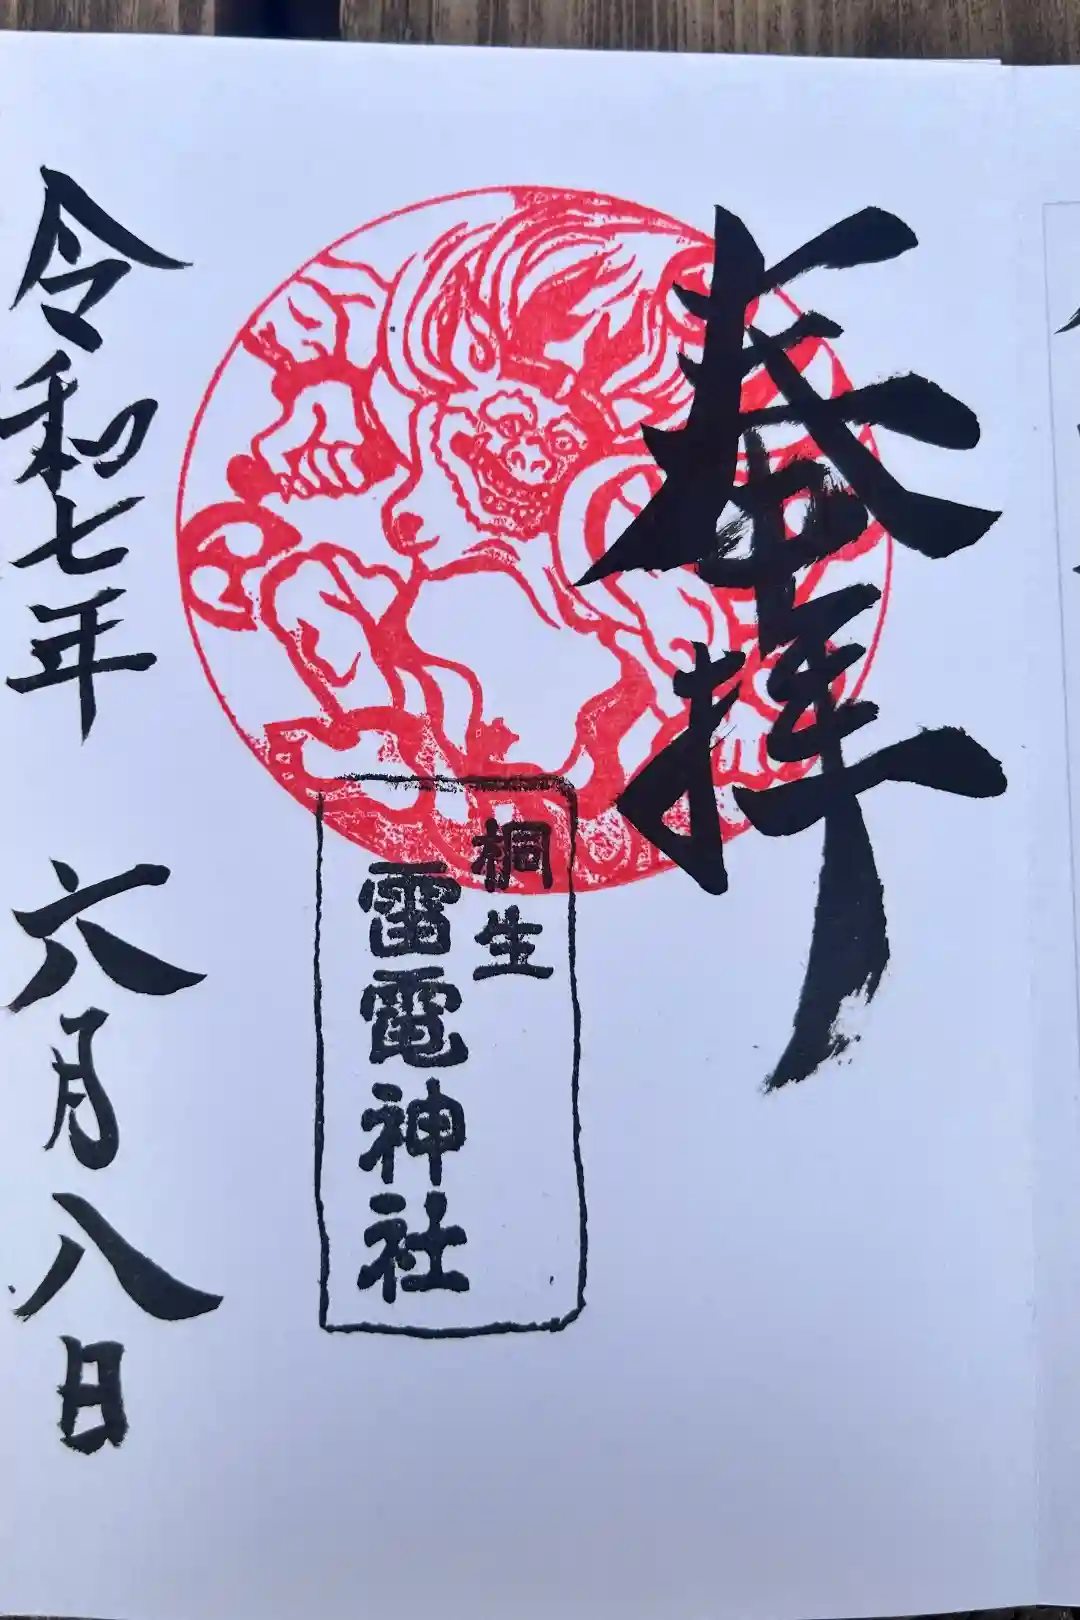 奉拝
桐生
雷電神社
令和七年 六月八日